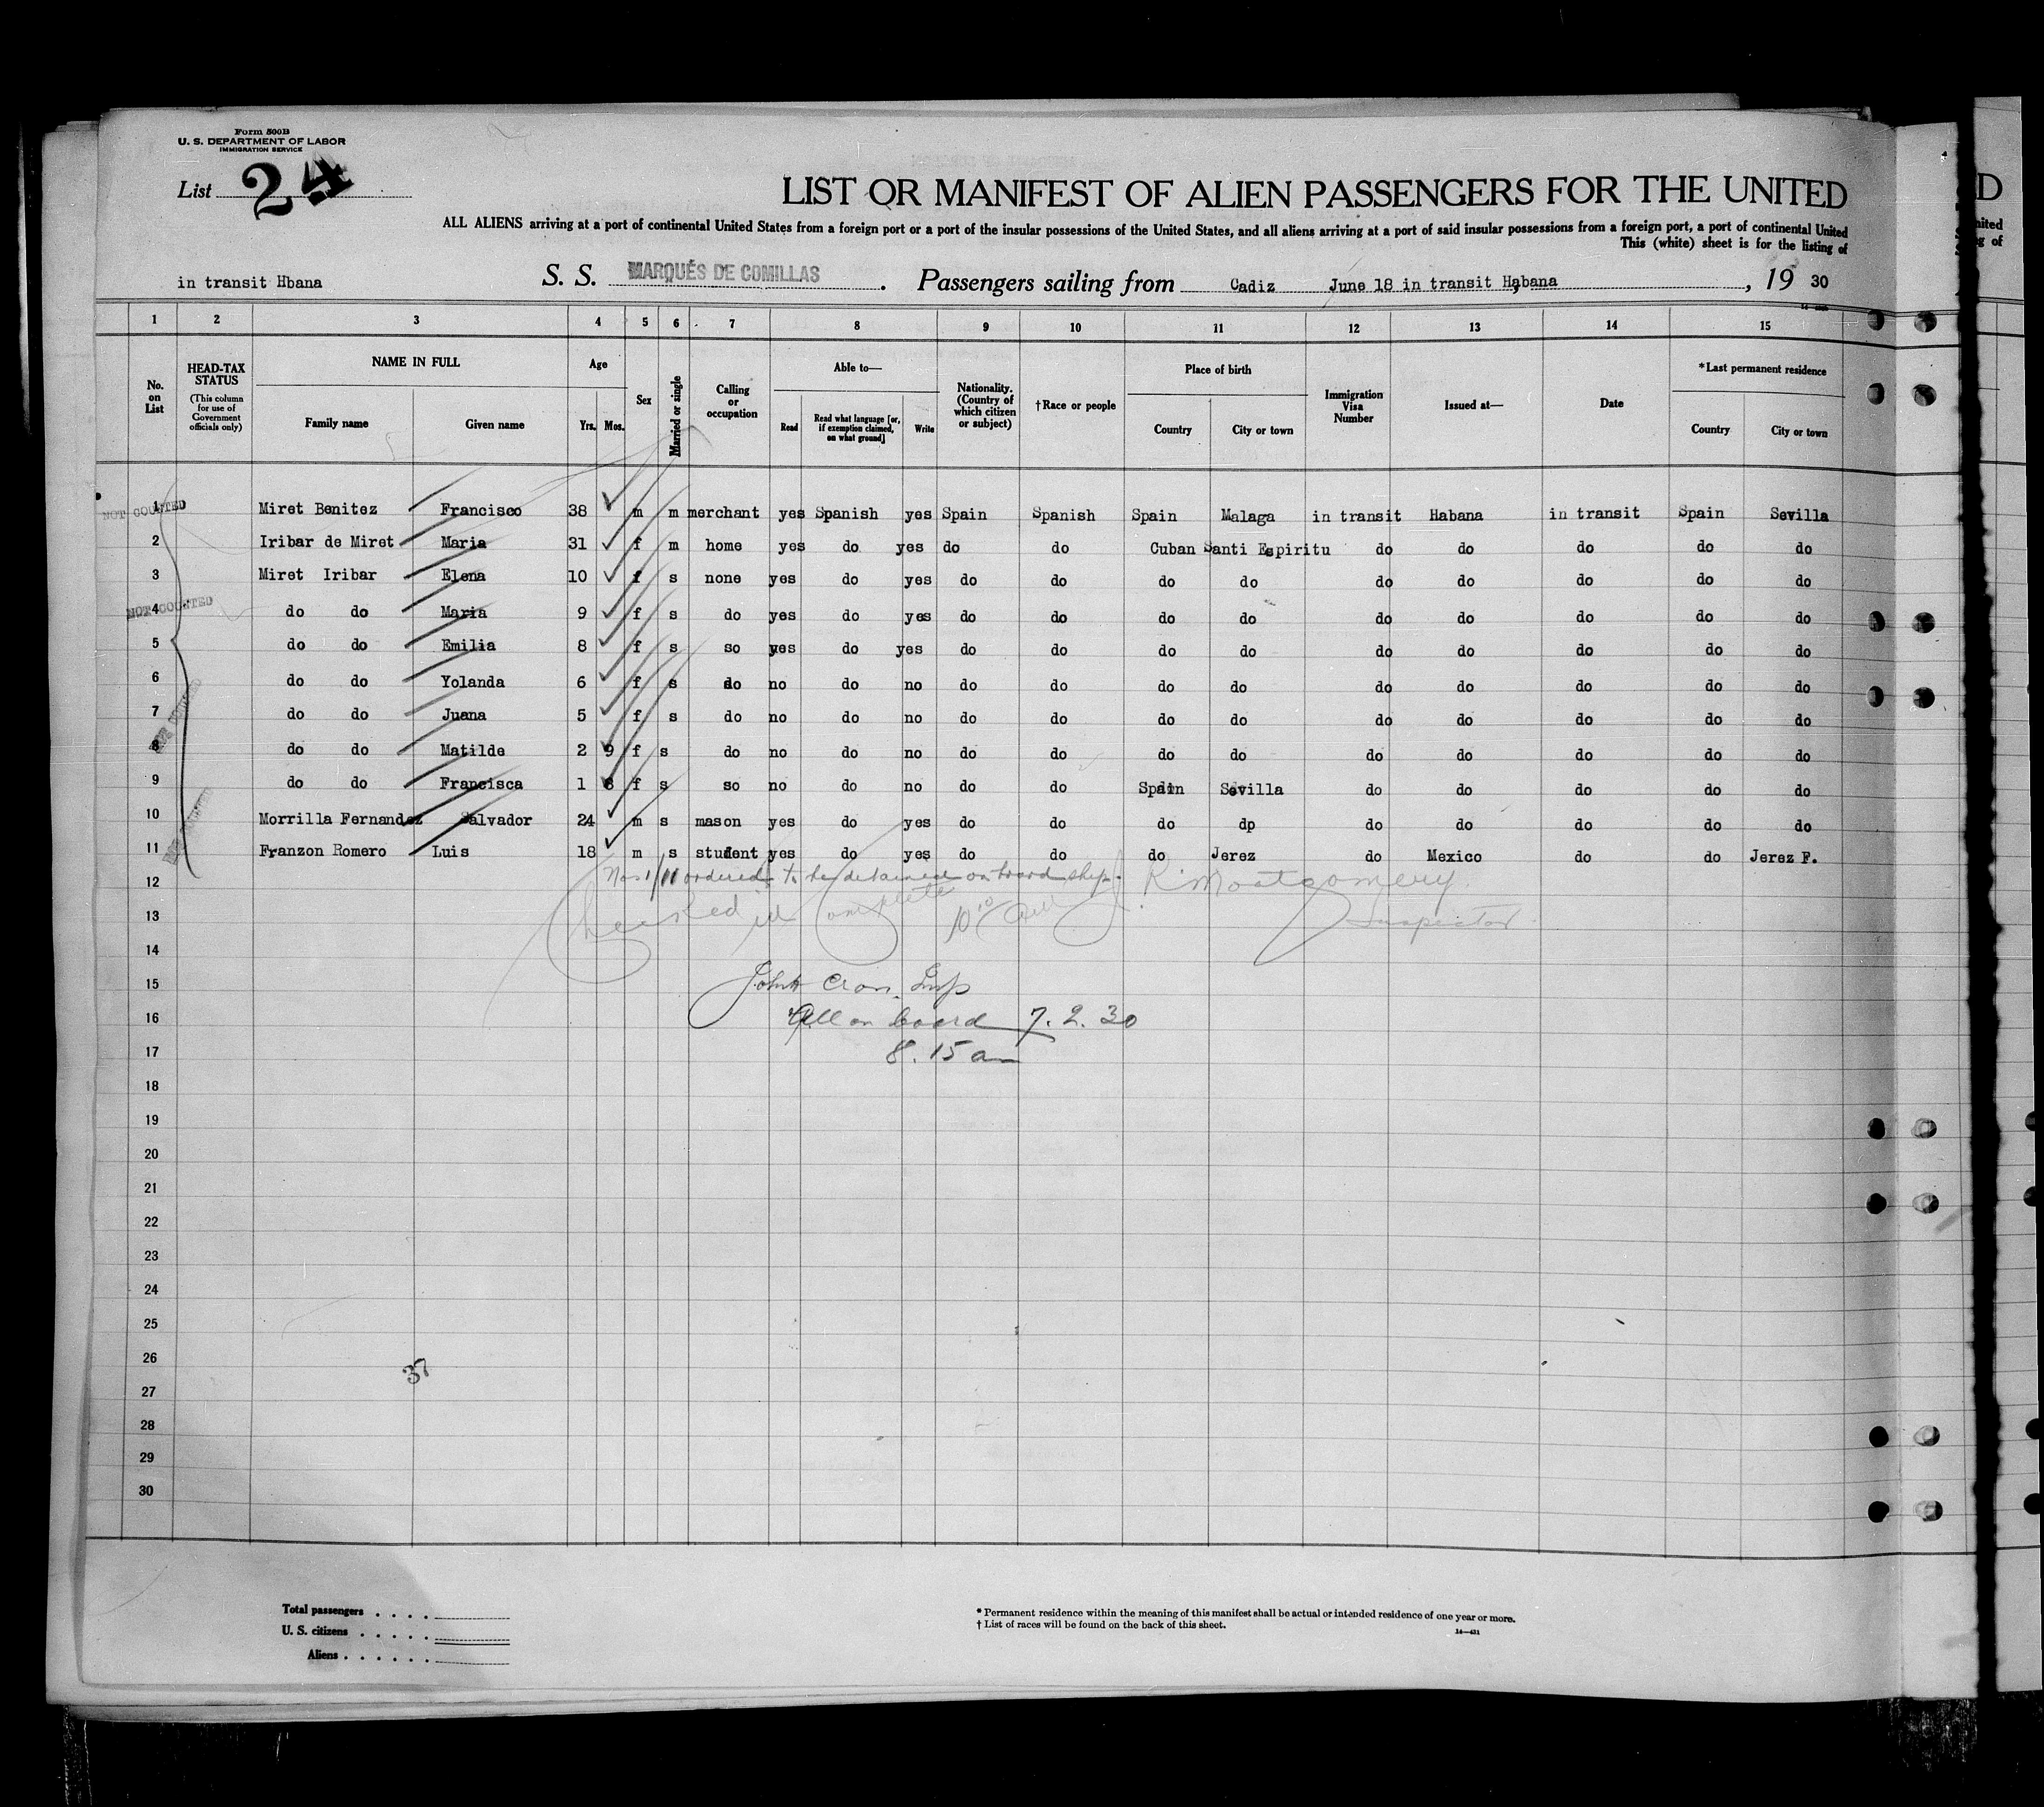 Form 500B
U. S. DEPARTMENT OF LABOR
IMMIGRATION SERVICE
List 24
LIST OR MANIFEST OF ALIEN PASSENGERS FOR THE UNITED
ALL ALIENS arriving at a port of continental United States from a foreign port or a port of the insular possessions of the United States, and all aliens arriving at a port of said insular possessions from a foreign port, a port of continental United
This (white) sheet is for the listing of
in transit Hbana S. S. MARQUÉS DE COMILLAS . Passengers sailing from Cadiz June 18 in transit Habana , 19 30
1 2 3 4 5 6 7 8 9 10 11 12 13 14 15
No. on List
HEAD-TAX STATUS
(This column for use of Government officials only)
NAME IN FULL
Family name Given name
Age
Yrs. Mos.
Sex
Married or single
Calling or occupation
Able to—
Read
Read what language [or, if exemption claimed, on what ground]
Write
Nationality. (Country of which citizen or subject)
†Race or people
Place of birth
Country City or town
Immigration Visa Number
Issued at—
Date
*Last permanent residence
Country City or town
NOT COUNTED
1 Miret Benitez Francisco 38 m m merchant yes Spanish yes Spain Spanish Spain Malaga in transit Habana in transit Spain Sevilla
2 Iribar de Miret Maria 31 f m home yes do yes do do Cuban Santi Espiritu do do do do do
3 Miret Iribar Elena 10 f s none yes do yes do do do do do do do do do
NOT COUNTED
4 do do Maria 9 f s do yes do yes do do do do do do do do do
5 do do Emilia 8 f s so yes do yes do do do do do do do do do
6 do do Yolanda 6 f s do no do no do do do do do do do do do
7 do do Juana 5 f s do no do no do do do do do do do do do
8 do do Matilde 2 9 f s do no do no do do do do do do do do do
9 do do Francisca 1 8 f s so no do no do do Spain Sevilla do do do do do
10 Morrilla Fernandez Salvador 24 m s mason yes do yes do do do dp do do do do do
11 Franzon Romero Luis 18 m s student yes do yes do do do Jerez do Mexico do do Jerez F.
12 Nos 1/11 ordered to be detained on board ship. R Montgomery
13 Checked all Complete 10 Inspector
14
15 John Cron. Insp
16 All on board 7. 2. 30
17 8. 15 am
18
19
20
21
22
23
24
25
26
37
27
28
29
30
Total passengers . . . .
U. S. citizens . . . . .
Aliens . . . . . .
* Permanent residence within the meaning of this manifest shall be actual or intended residence of one year or more.
† List of races will be found on the back of this sheet.
14—431